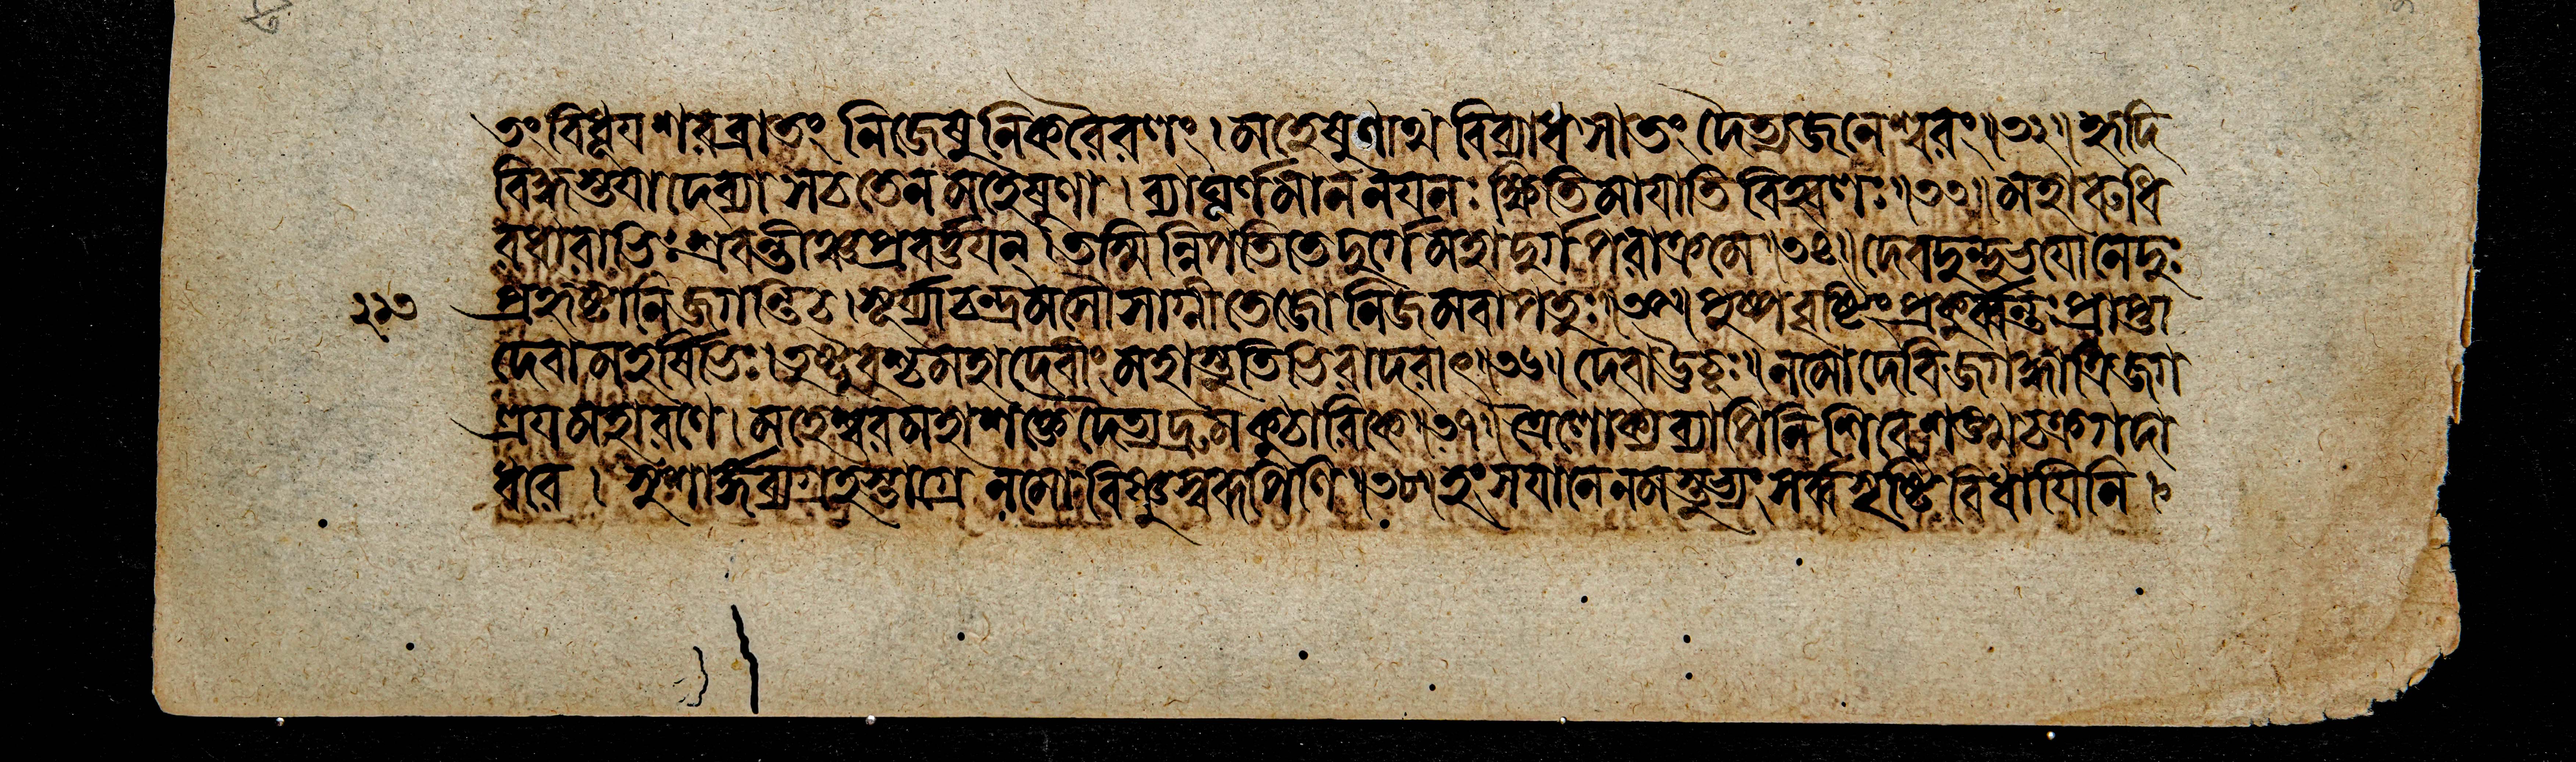 তং বিধূয শরব্রাতং নিজেষুনিকরৈরণং। মহেষুণাথ বিব্যাধ সাতং দৈত্যজনেশ্বরং॥৩২॥ হৃদি
বিদ্ধস্তযা দেব্যা সচ তেন মহেষুণা। ব্যাঘূর্ণমাননযনঃ ক্ষিতিমাযাতি বিহ্বলঃ॥৩৩॥ মহারুধি
রধারাভিঃ শ্রবন্তীঞ্চ প্রবর্ত্তযন্। তস্মিন্নিপতিতে দুর্গে মহাদুর্গপরাক্রমে॥৩৪॥ দেবদুন্দুভযো নেদুঃ
প্রহৃষ্টানি জগান্তি চ। সূর্য্যাচন্দ্রমসৌ সাগ্নী তেজো নিজমবাপতুঃ॥৩৫॥ পুষ্পবৃষ্টিং প্রকুর্ব্বন্তঃ প্রাপ্তা
দেবা মহর্ষিভিঃ। তুষ্টুবুশ্চ মহাদেবীং মহাস্তুতিভিরাদরাৎ॥৩৬॥ দেবা ঊচুঃ॥ নমো দেবি জগদ্ধাত্রি জগ
ত্ত্রযমহারণে। মহেশ্বরমহাশক্তে দৈত্যদ্রুমকুঠারিকে॥৩৭॥ ত্রৈলোক্যব্যাপিনি শিবে শঙ্খচক্রগদা
ধরে। স্বশার্ঙ্গব্যগ্রহস্তাগ্রে নমো বিষ্ণুস্বরূপিণি॥৩৮॥ হংসযানে নমস্তুভ্যং সর্ব্বসৃষ্টিবিধাযিনি।
২১৩